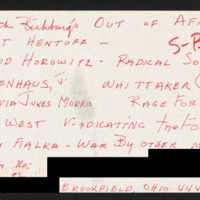 Birkburg's OUT OF AF
T HENTOFF -
S-B
UD HOROWITZ - RADICAL SO
ENHAUS, J. WHITTAKER C
VIA JUKES MORRO RACE FOR
WEST VINDICATING THE FO
FIALKA - WAR BY OTHER M
BROOKFIELD, OHIO 444